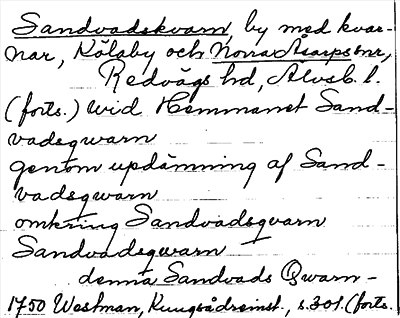 Sandvadskvarn, by med kvar-
nar, Kölaby och Norra Åsarps snr,
Redvägs hd, Älvsb. l.
(forts.) wid Hemmanet Sand-
vadsqwarn
genom updämning af Sand-
vadsqwarn
omkring Sandvadsqvarn
Sandvadsqwarn
denna Sandvads Qwarn -
1750 Westman, Kungsådreinst., s. 301. (forts.